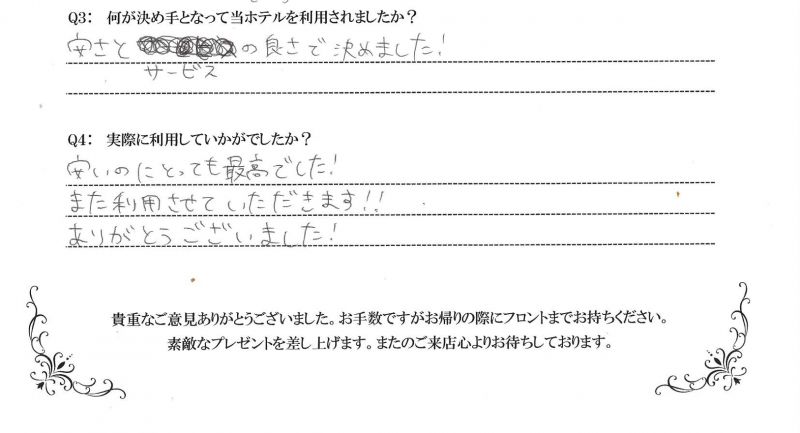 Q3： 何が決め手となって当ホテルを利用されましたか？
安さと の良さで決めました！
サービス
Q4： 実際に利用していかがでしたか？
安いのにとっても最高でした！
また利用させていただきます！！
ありがとうございました！
貴重なご意見ありがとうございました。お手数ですがお帰りの際にフロントまでお持ちください。
素敵なプレゼントを差し上げます。またのご来店心よりお待ちしております。